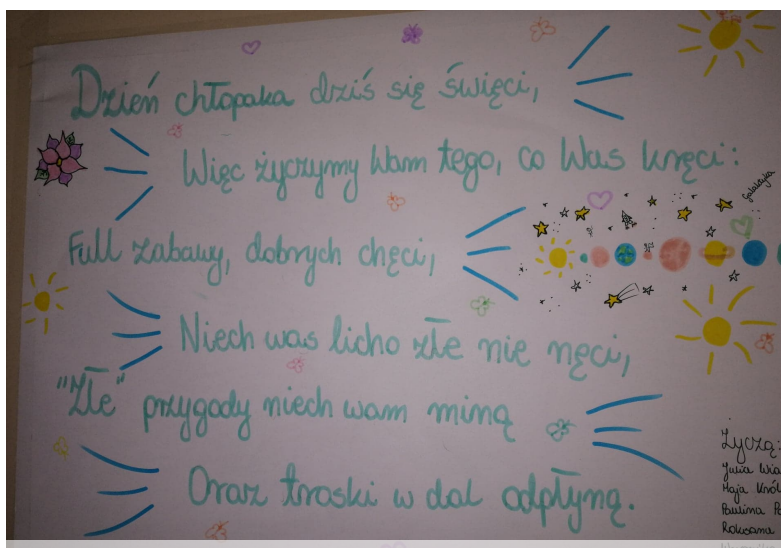 Dzień chłopaka dziś się święci,
Więc życzymy Wam tego, co Was kręci:
galaktyka
Full zabawy, dobrych chęci,
Niech was licho złe nie nęci,
"Złe" przygody niech wam miną
Oraz troski w dal odpłyną.
Życzą:
Julia
Maja Król
Paulina
Roksana